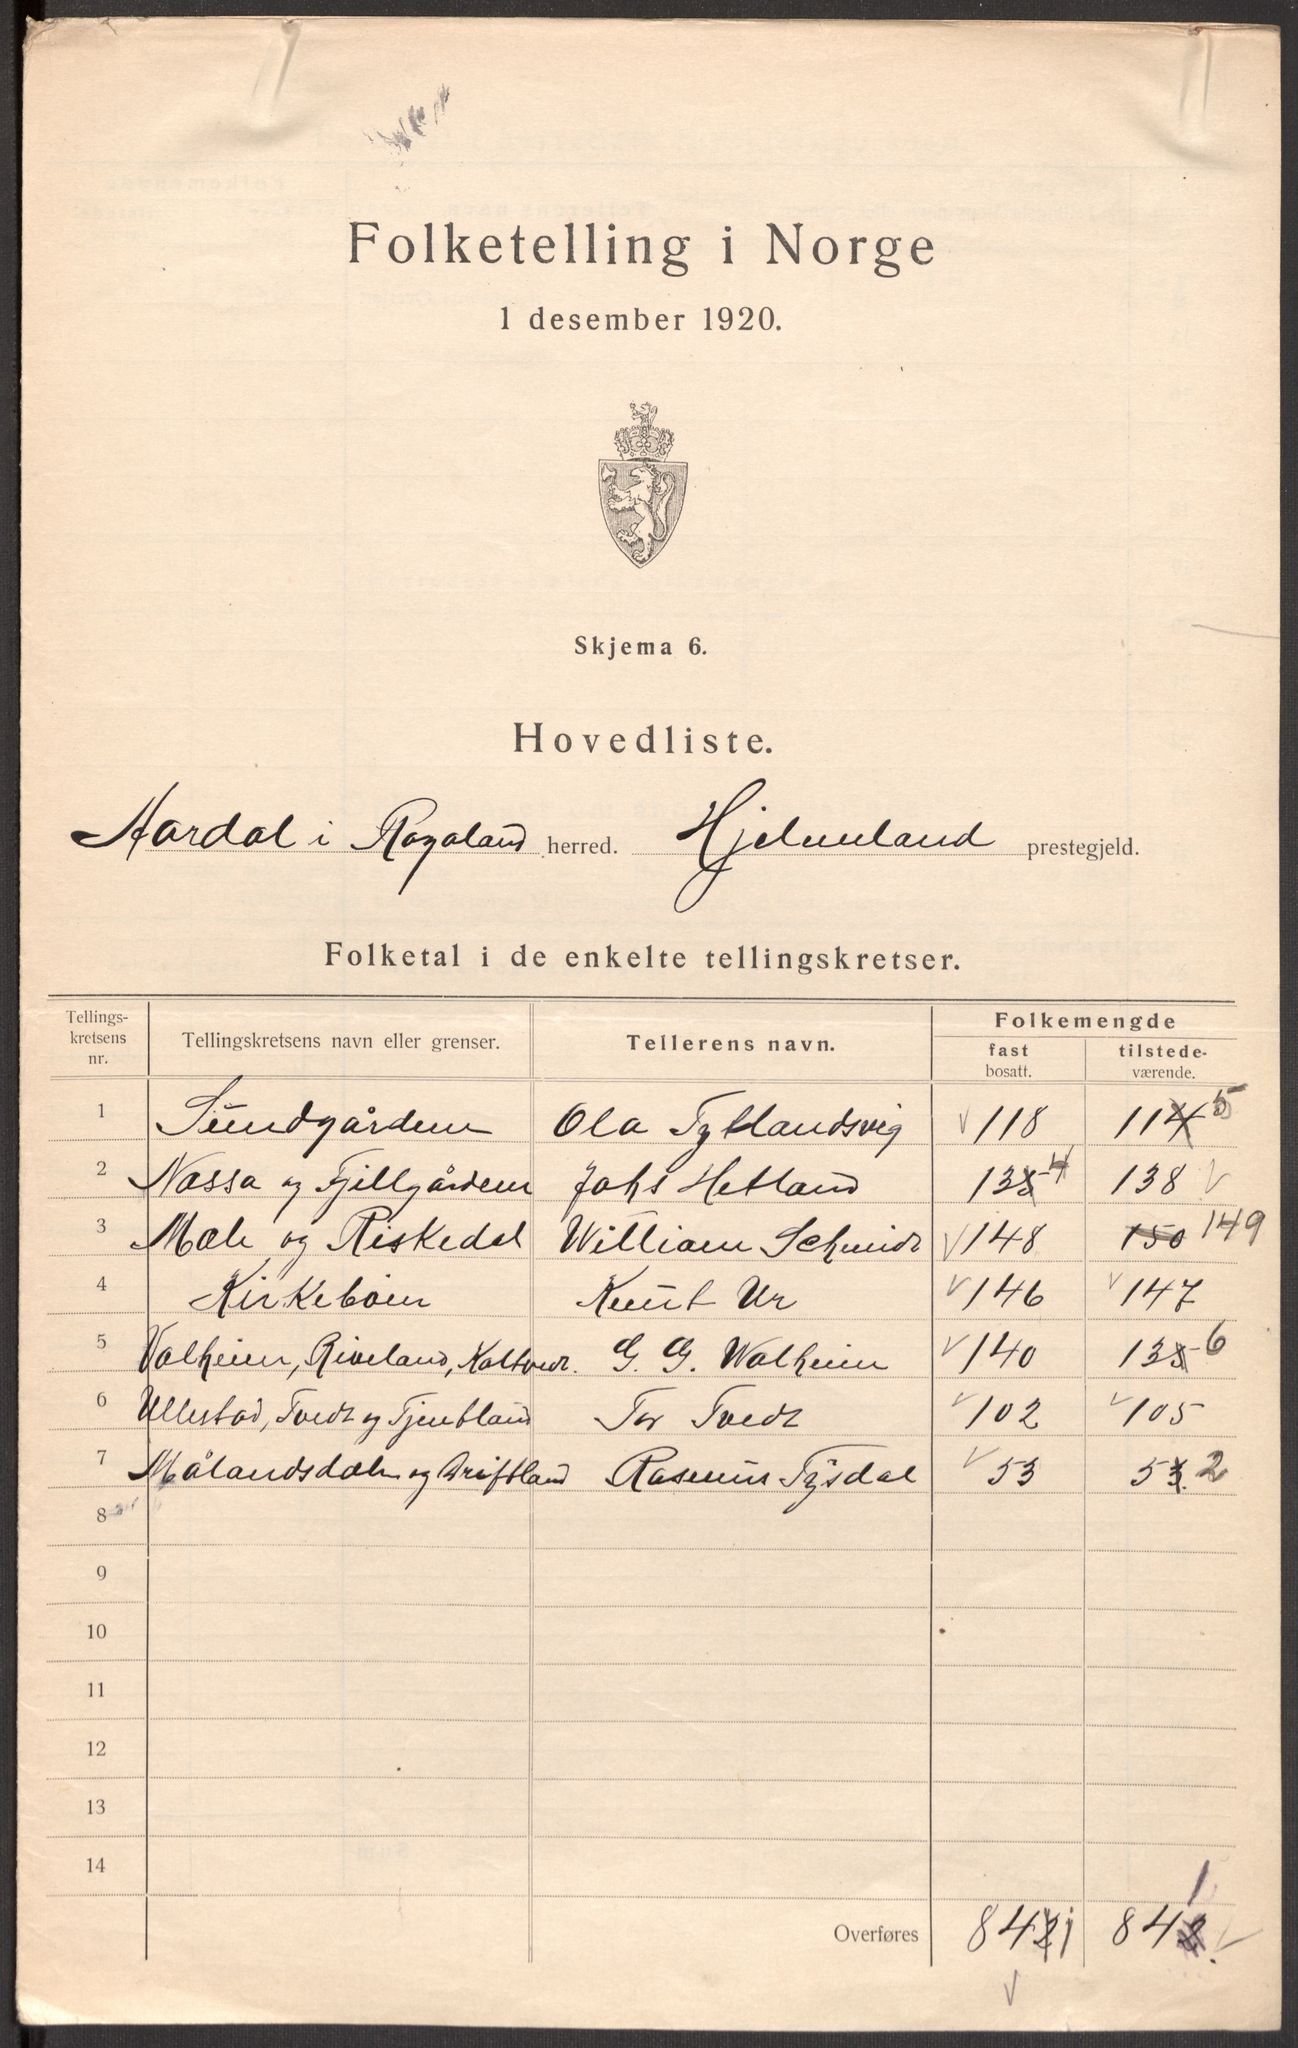 Folketelling i Norge
1 desember 1920.
Skjema 6.
Hovedliste.
Aardal i Rogaland herred. Hjelmeland prestegjeld.
Folketal i de enkelte tellingskretser.
Tellings-kretsens nr. Tellingskretsens navn eller grenser. Tellerens navn. Folkemengde
fast bosatt. tilstede-værende.
1 Sundgårdene Ola Tytlandsvig 118 114 5
2 Nassa og Fjellgårdene Johs Hetland 135 4 138
3 Mæle og Riskedal William Schmidt 148 150 149
4 Kirkebøen Knut Ur 146 147
5 Valheim, Riveland, Kaltvedt. G. G. Walheim 140 135 6
6 Ullestad, Tvedt og Tjentland Tor Tvedt 102 105
7 Målandsdalen og Driftland Rasmus Tysdal 53 53 2
8
9
10
11
12
13
14
Overføres 842 1 842 1